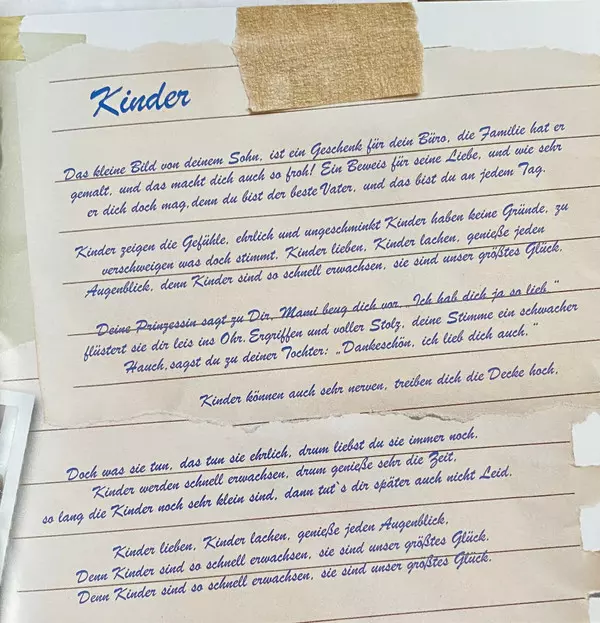 Kinder
Das kleine Bild von deinem Sohn, ist ein Geschenk für dein Büro, die Familie hat er
gemalt, und das macht dich auch so froh! Ein Beweis für seine Liebe, und wie sehr
er dich doch mag,denn du bist der beste Vater, und das bist du an jedem Tag.
Kinder zeigen die Gefühle, ehrlich und ungeschminkt Kinder haben keine Gründe, zu
verschweigen was doch stimmt, Kinder lieben, Kinder lachen, genieße jeden
Augenblick, denn Kinder sind so schnell erwachsen, sie sind unser größtes Glück.
Deine Prinzessin sagt zu Dir, Mami beug dich vor, „Ich hab dich ja so lieb“
flüstert sie dir leis ins Ohr. Ergriffen und voller Stolz, deine Stimme ein schwacher
Hauch,sagst du zu deiner Tochter: „Dankeschön, ich lieb dich auch.“
Kinder können auch sehr nerven, treiben dich die Decke hoch,
Doch was sie tun, das tun sie ehrlich, drum liebst du sie immer noch.
Kinder werden schnell erwachsen, drum genieße sehr die Zeit,
so lang die Kinder noch sehr klein sind, dann tut`s dir später auch nicht Leid.
Kinder lieben, Kinder lachen, genieße jeden Augenblick,
Denn Kinder sind so schnell erwachsen, sie sind unser größtes Glück.
Denn Kinder sind so schnell erwachsen, sie sind unser größtes Glück.